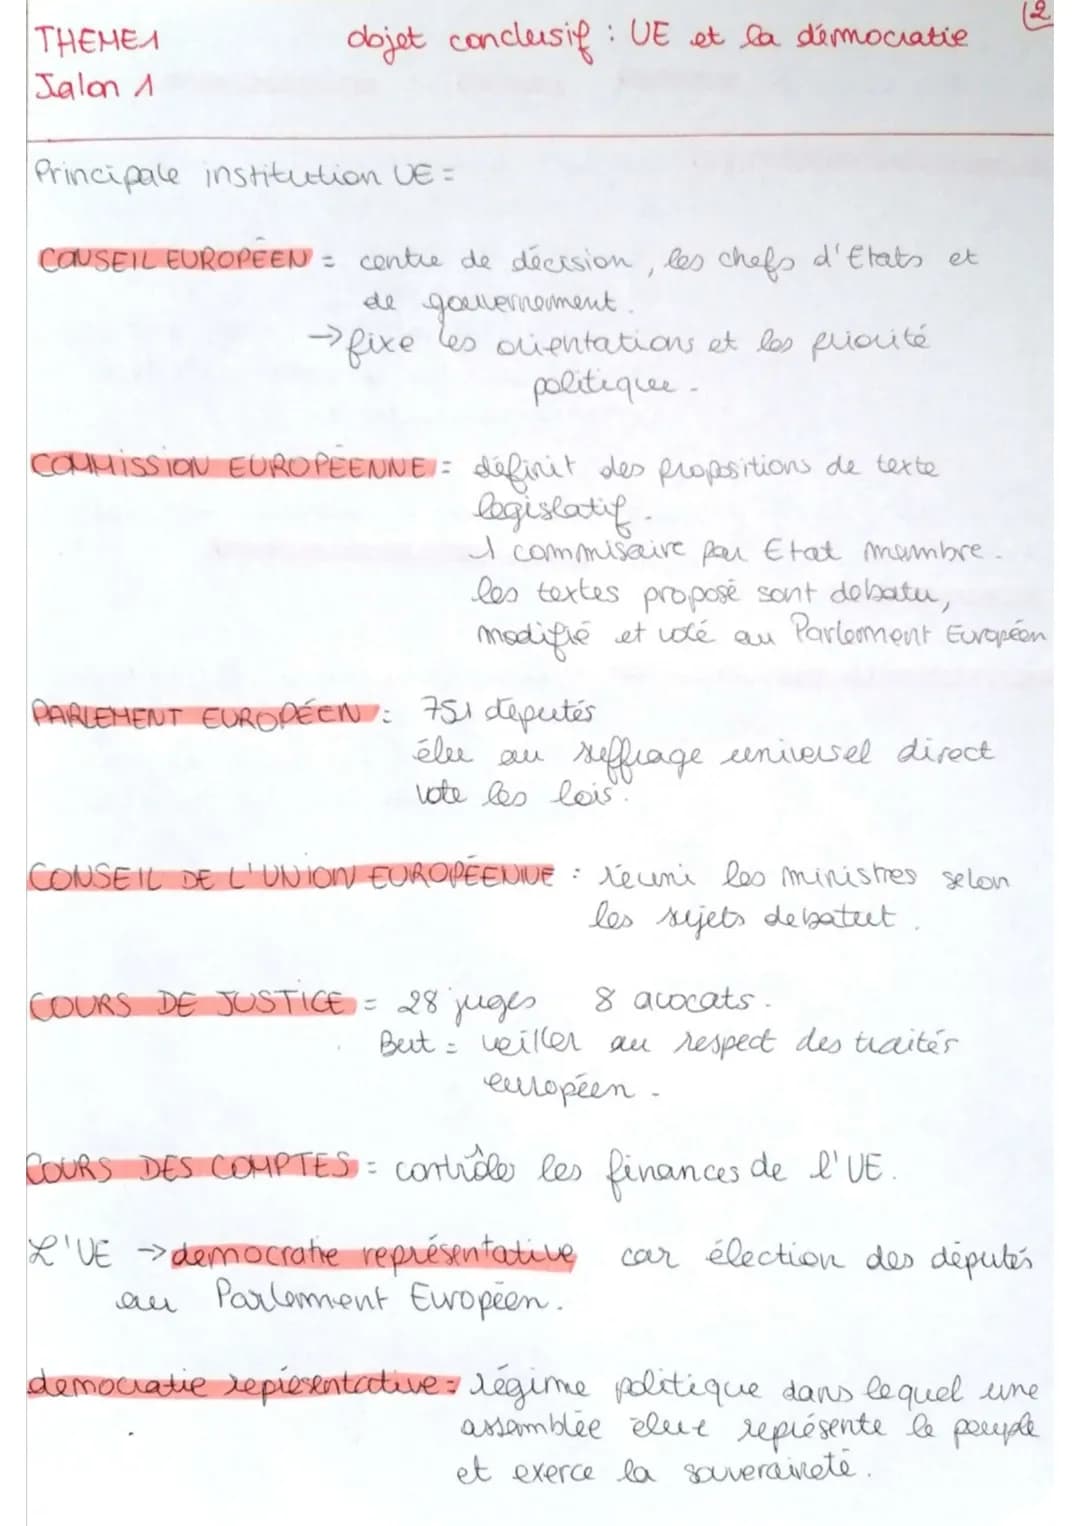 (2
THEME1 objet conclusif : UE et la démocratie
Jalon 1
Principale institution UE =
CONSEIL EUROPÉEN = centre de décision, les chefs d'Etats et
de gouvernement.
→ fixe les orientations et les priorité
politique.
COMMISSION EUROPÉENNE = définit des propositions de texte
legislatif.
1 commisaire par Etat membre.
les textes proposé sont debatu,
modifié et voté au Parlement Européen
PARLEMENT EUROPÉEN : 751 députés
élu au suffrage universel direct
vote les lois.
CONSEIL DE L'UNION EUROPÉENNE : réuni les ministres selon
les sujets debatut.
COURS DE JUSTICE = 28 juges 8 avocats.
But = veiller au respect des traités
européen.
COURS DES COMPTES = contrôler les finances de l'UE.
L'UE → democratie représentative car élection des députés
au Parlement Européen.
democratie représentative = régime politique dans lequel une
assemblée élue représente le peuple
et exerce la souveraineté.